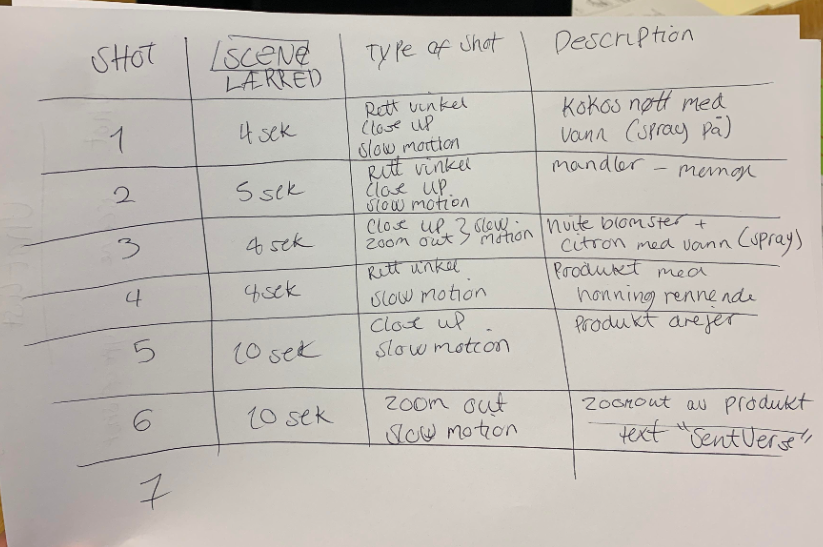 SHOT
SCENE
LÆRRED
Type of Shot
Description
1
4 sek
Rett vinkel
close up
slow motion
Kokos nøtt med
vann (spray på)
2
5 sek
Rett vinkel
close up.
slow motion
mandler -
3
sek
close up } slow
zoom out } motion
hvite blomster +
citron med vann (spray)
4
sek
Rett vinkel
slow motion
Produkt med
honning rennende
5
10 sek
Close up
slow motion
Produkt
6
10 sek
zoom out
slow motion
zoomout av produkt
text "SentVerse"
7